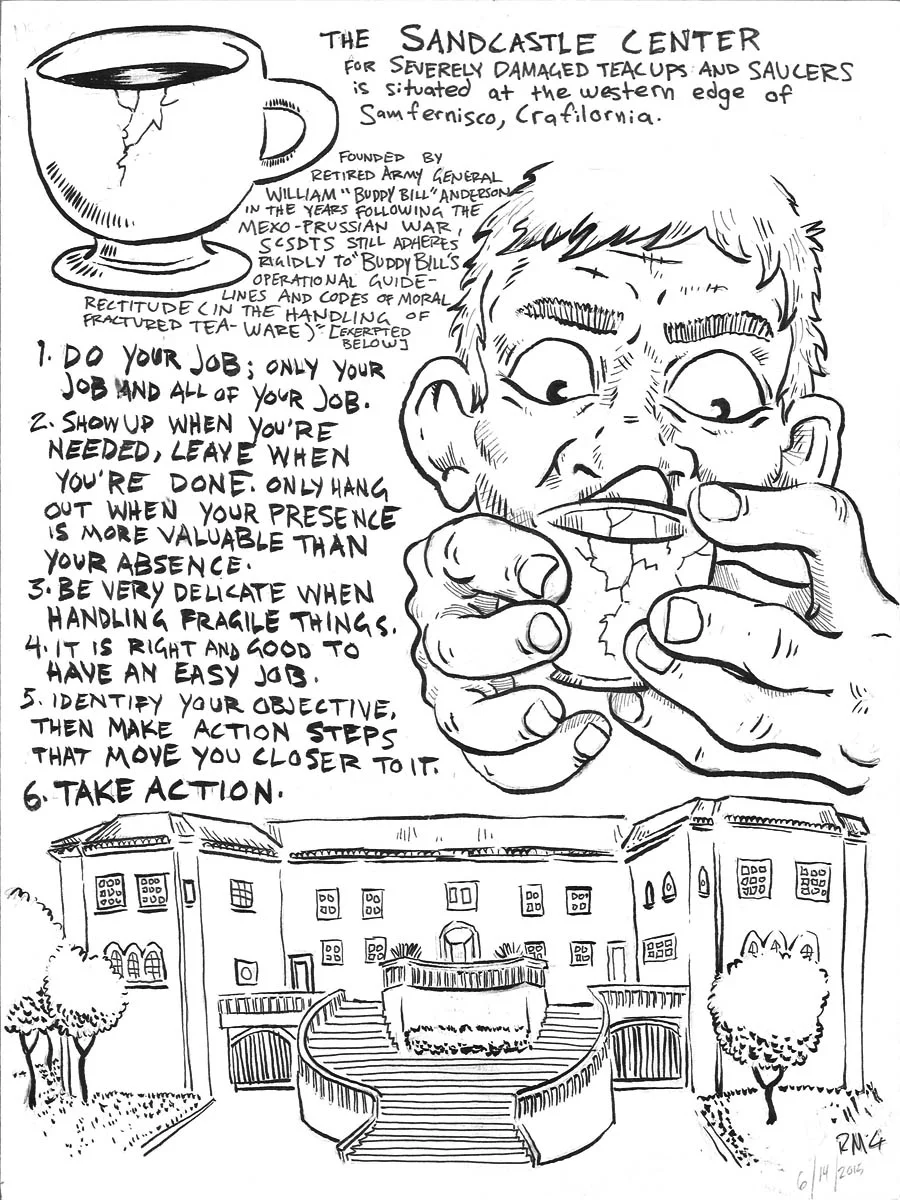 THE SANDCASTLE CENTER
FOR SEVERELY DAMAGED TEACUPS AND SAUCERS
is situated at the western edge of
Samfernisco, Crafilornia.
FOUNDED BY
RETIRED ARMY GENERAL
WILLIAM "BUDDY BILL" ANDERSON
IN THE YEARS FOLLOWING THE
MEXO-PRUSSIAN WAR,
SCSDTS STILL ADHERES
RIGIDLY TO "BUDDY BILL'S
OPERATIONAL GUIDE-
LINES AND CODES OF MORAL
RECTITUDE (IN THE HANDLING OF
FRACTURED TEA-WARE)" [EXERPTED
BELOW]
1. DO YOUR JOB; ONLY YOUR
JOB AND ALL OF YOUR JOB.
2. SHOW UP WHEN YOU'RE
NEEDED, LEAVE WHEN
YOU'RE DONE. ONLY HANG
OUT WHEN YOUR PRESENCE
IS MORE VALUABLE THAN
YOUR ABSENCE.
3. BE VERY DELICATE WHEN
HANDLING FRAGILE THINGS.
4. IT IS RIGHT AND GOOD TO
HAVE AN EASY JOB.
5. IDENTIFY YOUR OBJECTIVE,
THEN MAKE ACTION STEPS
THAT MOVE YOU CLOSER TO IT.
6. TAKE ACTION.
RMG
6/14/2015